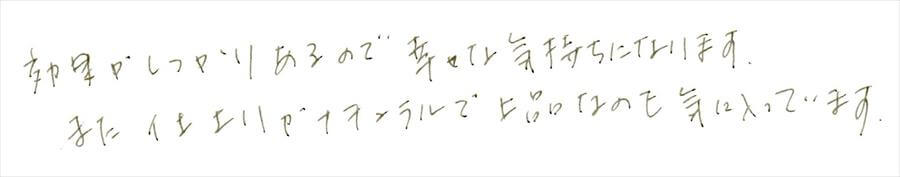 効果がしっかりあるので幸せな気持ちになります.
また仕上りがナチュラルで上品なのも気に入っています.